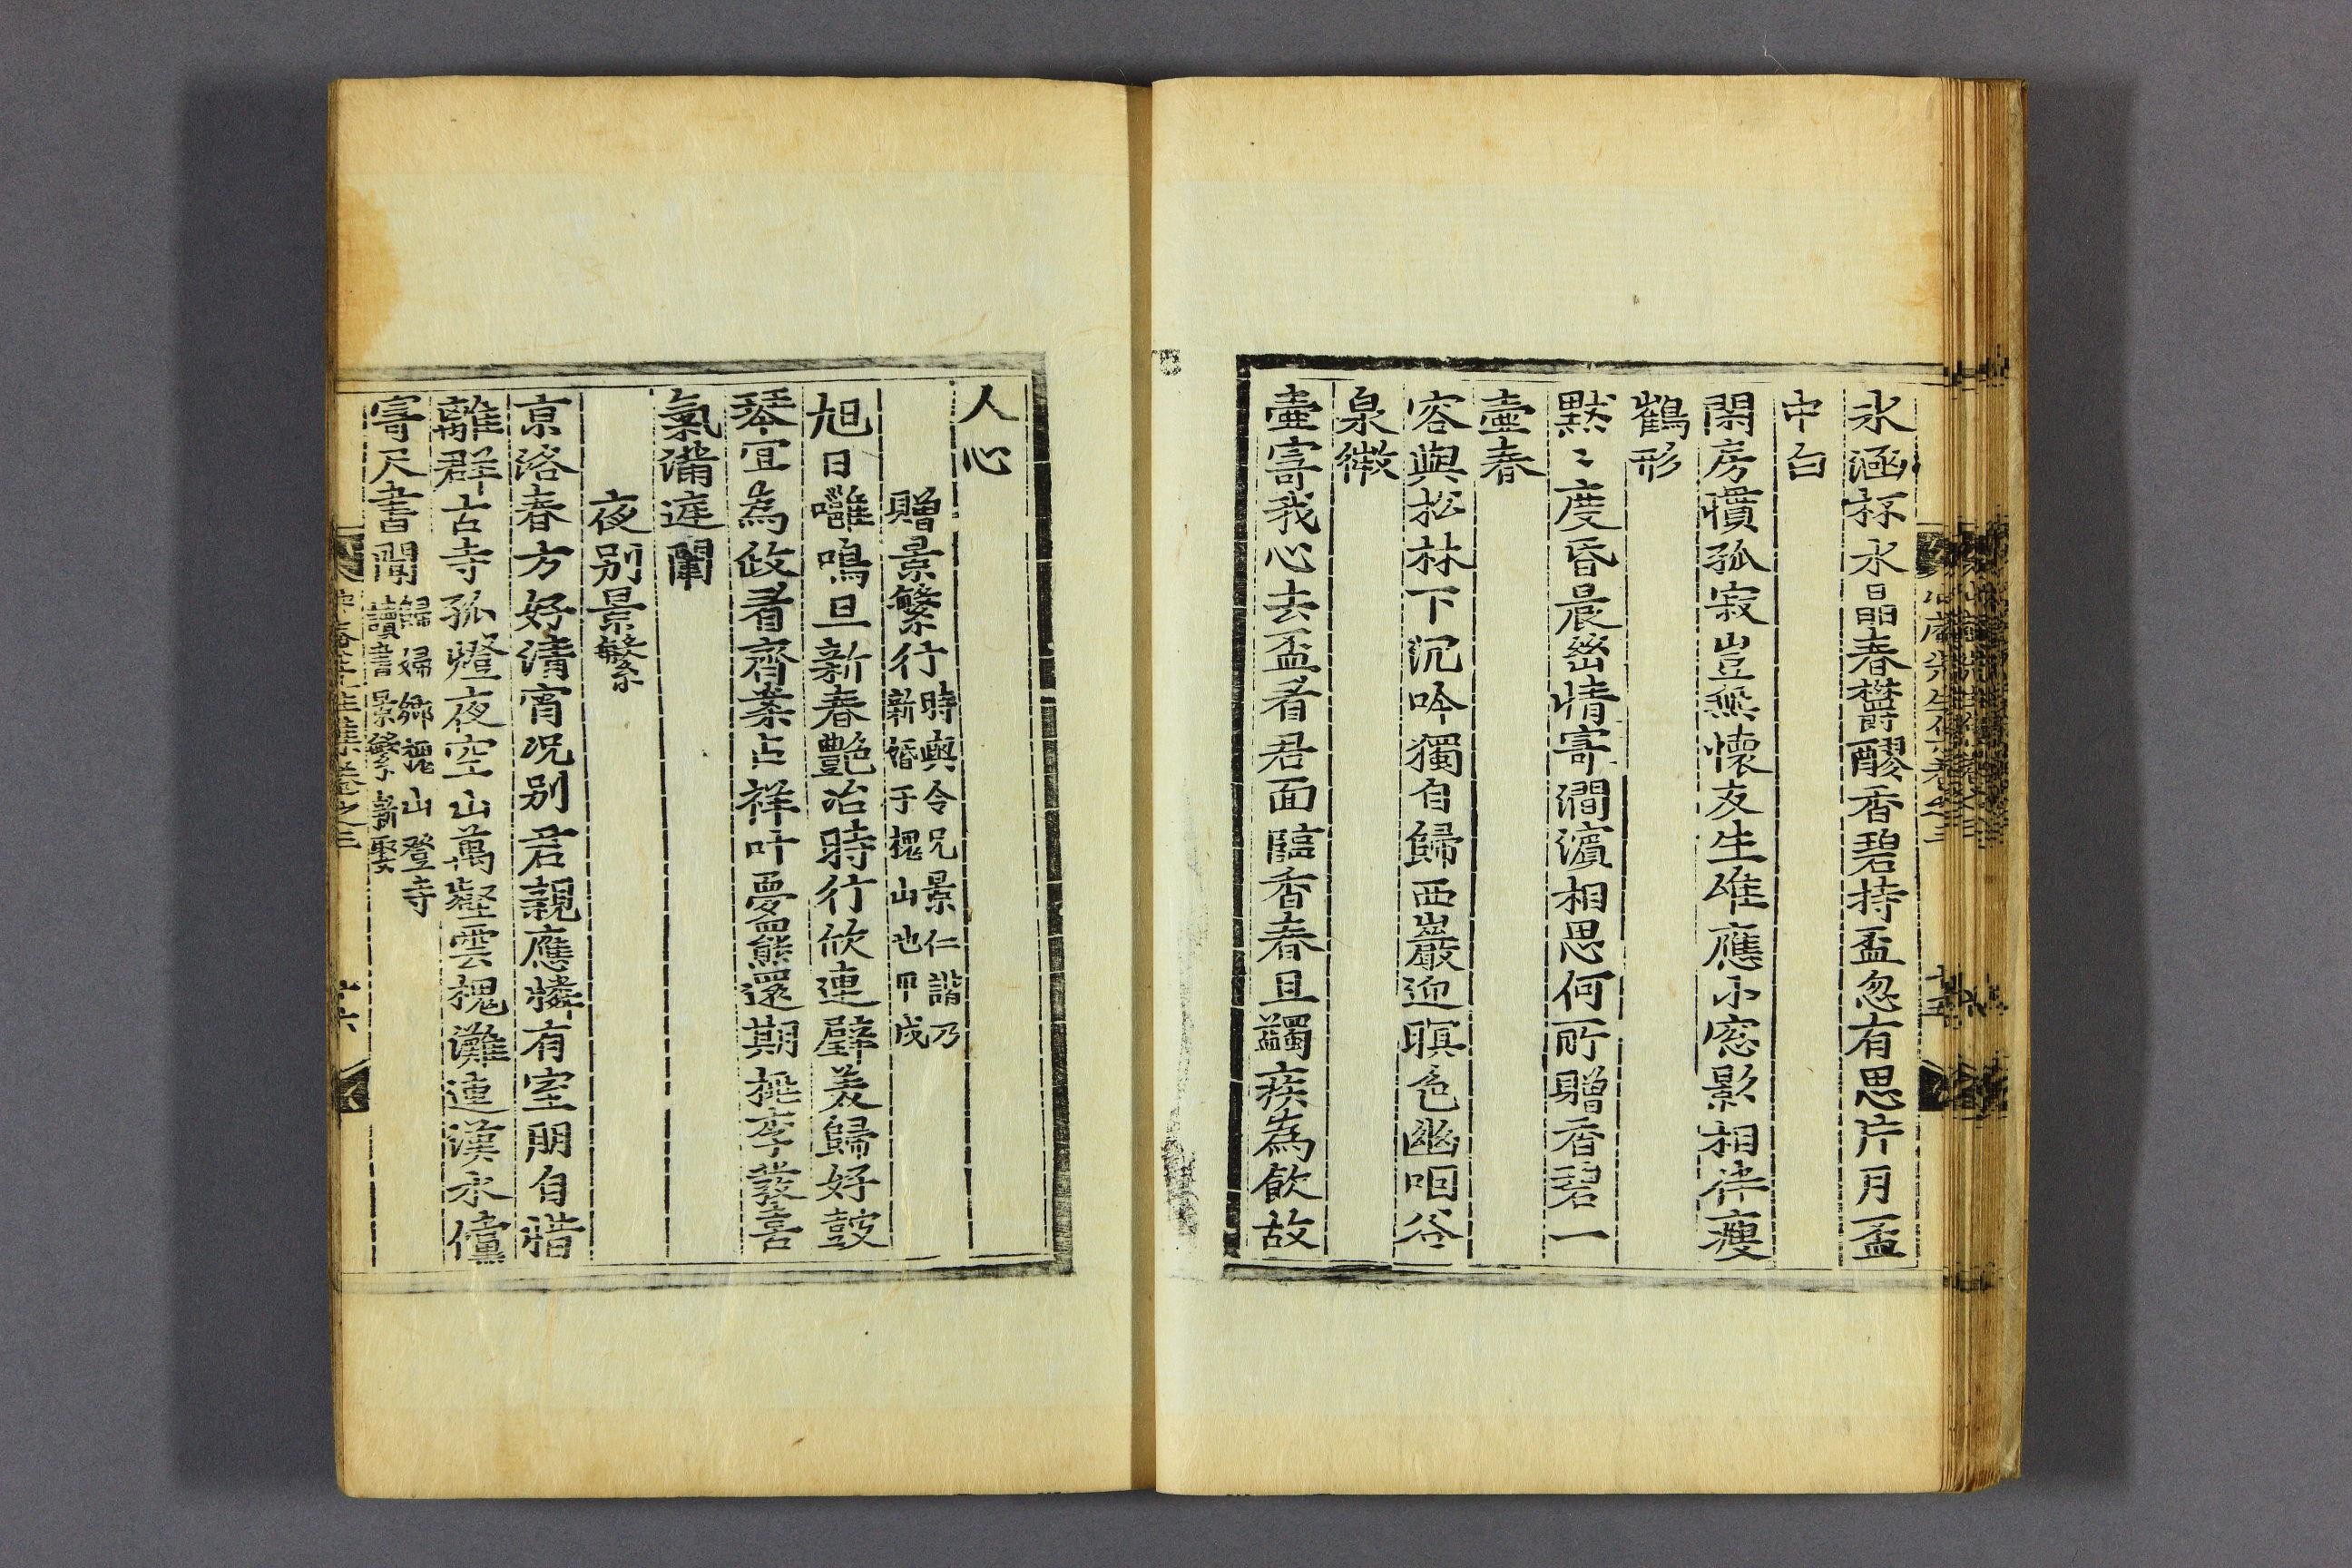 氷涵杯水晶春欝醪香碧持盃忽有思片月盃
中白
閑房慣孤寂豈無懷友生唯應小窓影相伴瘦
鶴形
默〻度昏晨幽情寄澗濱相思何所贈香碧一
壷春
容與松林下沉吟獨自歸西巖迎暝色幽咽谷
泉微
壷寄我心去盃看君面臨香春且蠲疾為飮故
人心
贈景繁行時與令兄景仁諧乃
新婚于槐山也甲戌
旭日噰鳴旦新春艶冶時行欣連璧美歸好鼓
琴宜為飮看齊案占祥叶夢羆還期桃李發喜
氣滿庭闈
夜别景繁
京洛春方好清宵况别君親應憐有室朋自𢥠
離群古寺孤燈夜空山萬壑雲槐灘連漢水儻
寄尺書聞歸婦鄕槐山登寺
讀書景繁新娶
先生集卷之三
十五
十六